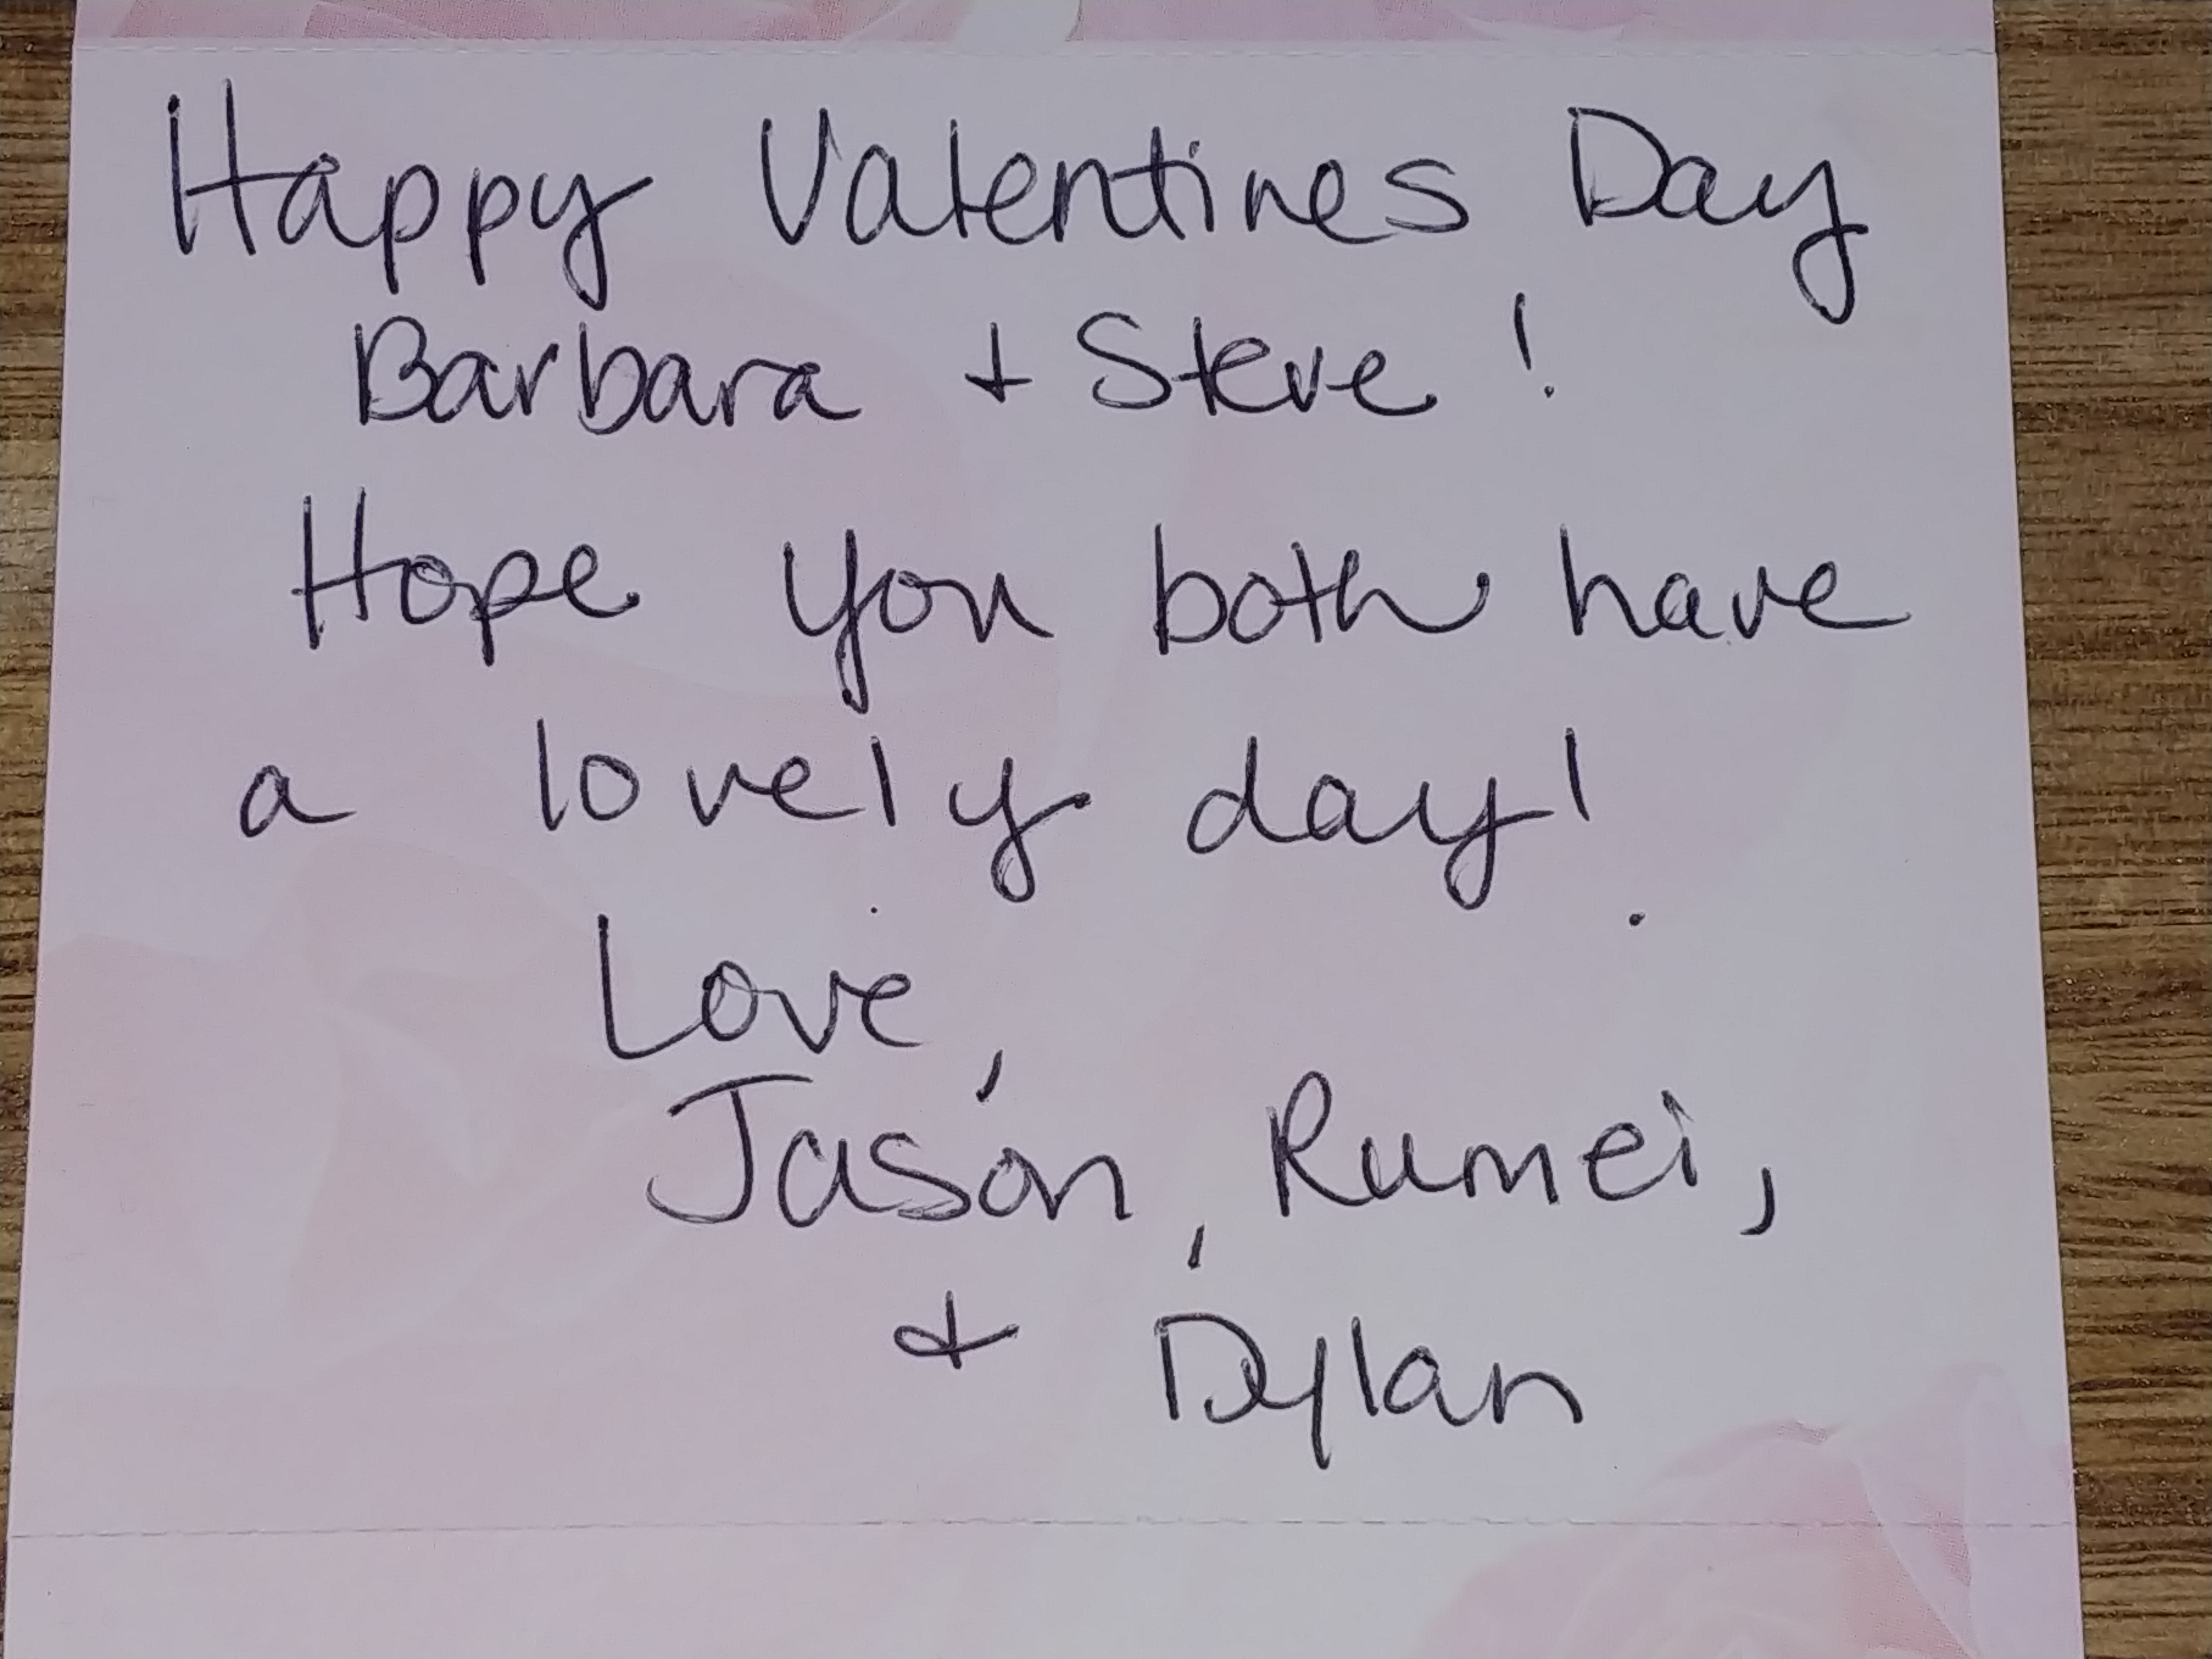 Happy Valentines Day
Barbara + Steve !
Hope you both have
a lovely day!
Love,
Jason, Rumei,
+ Dylan